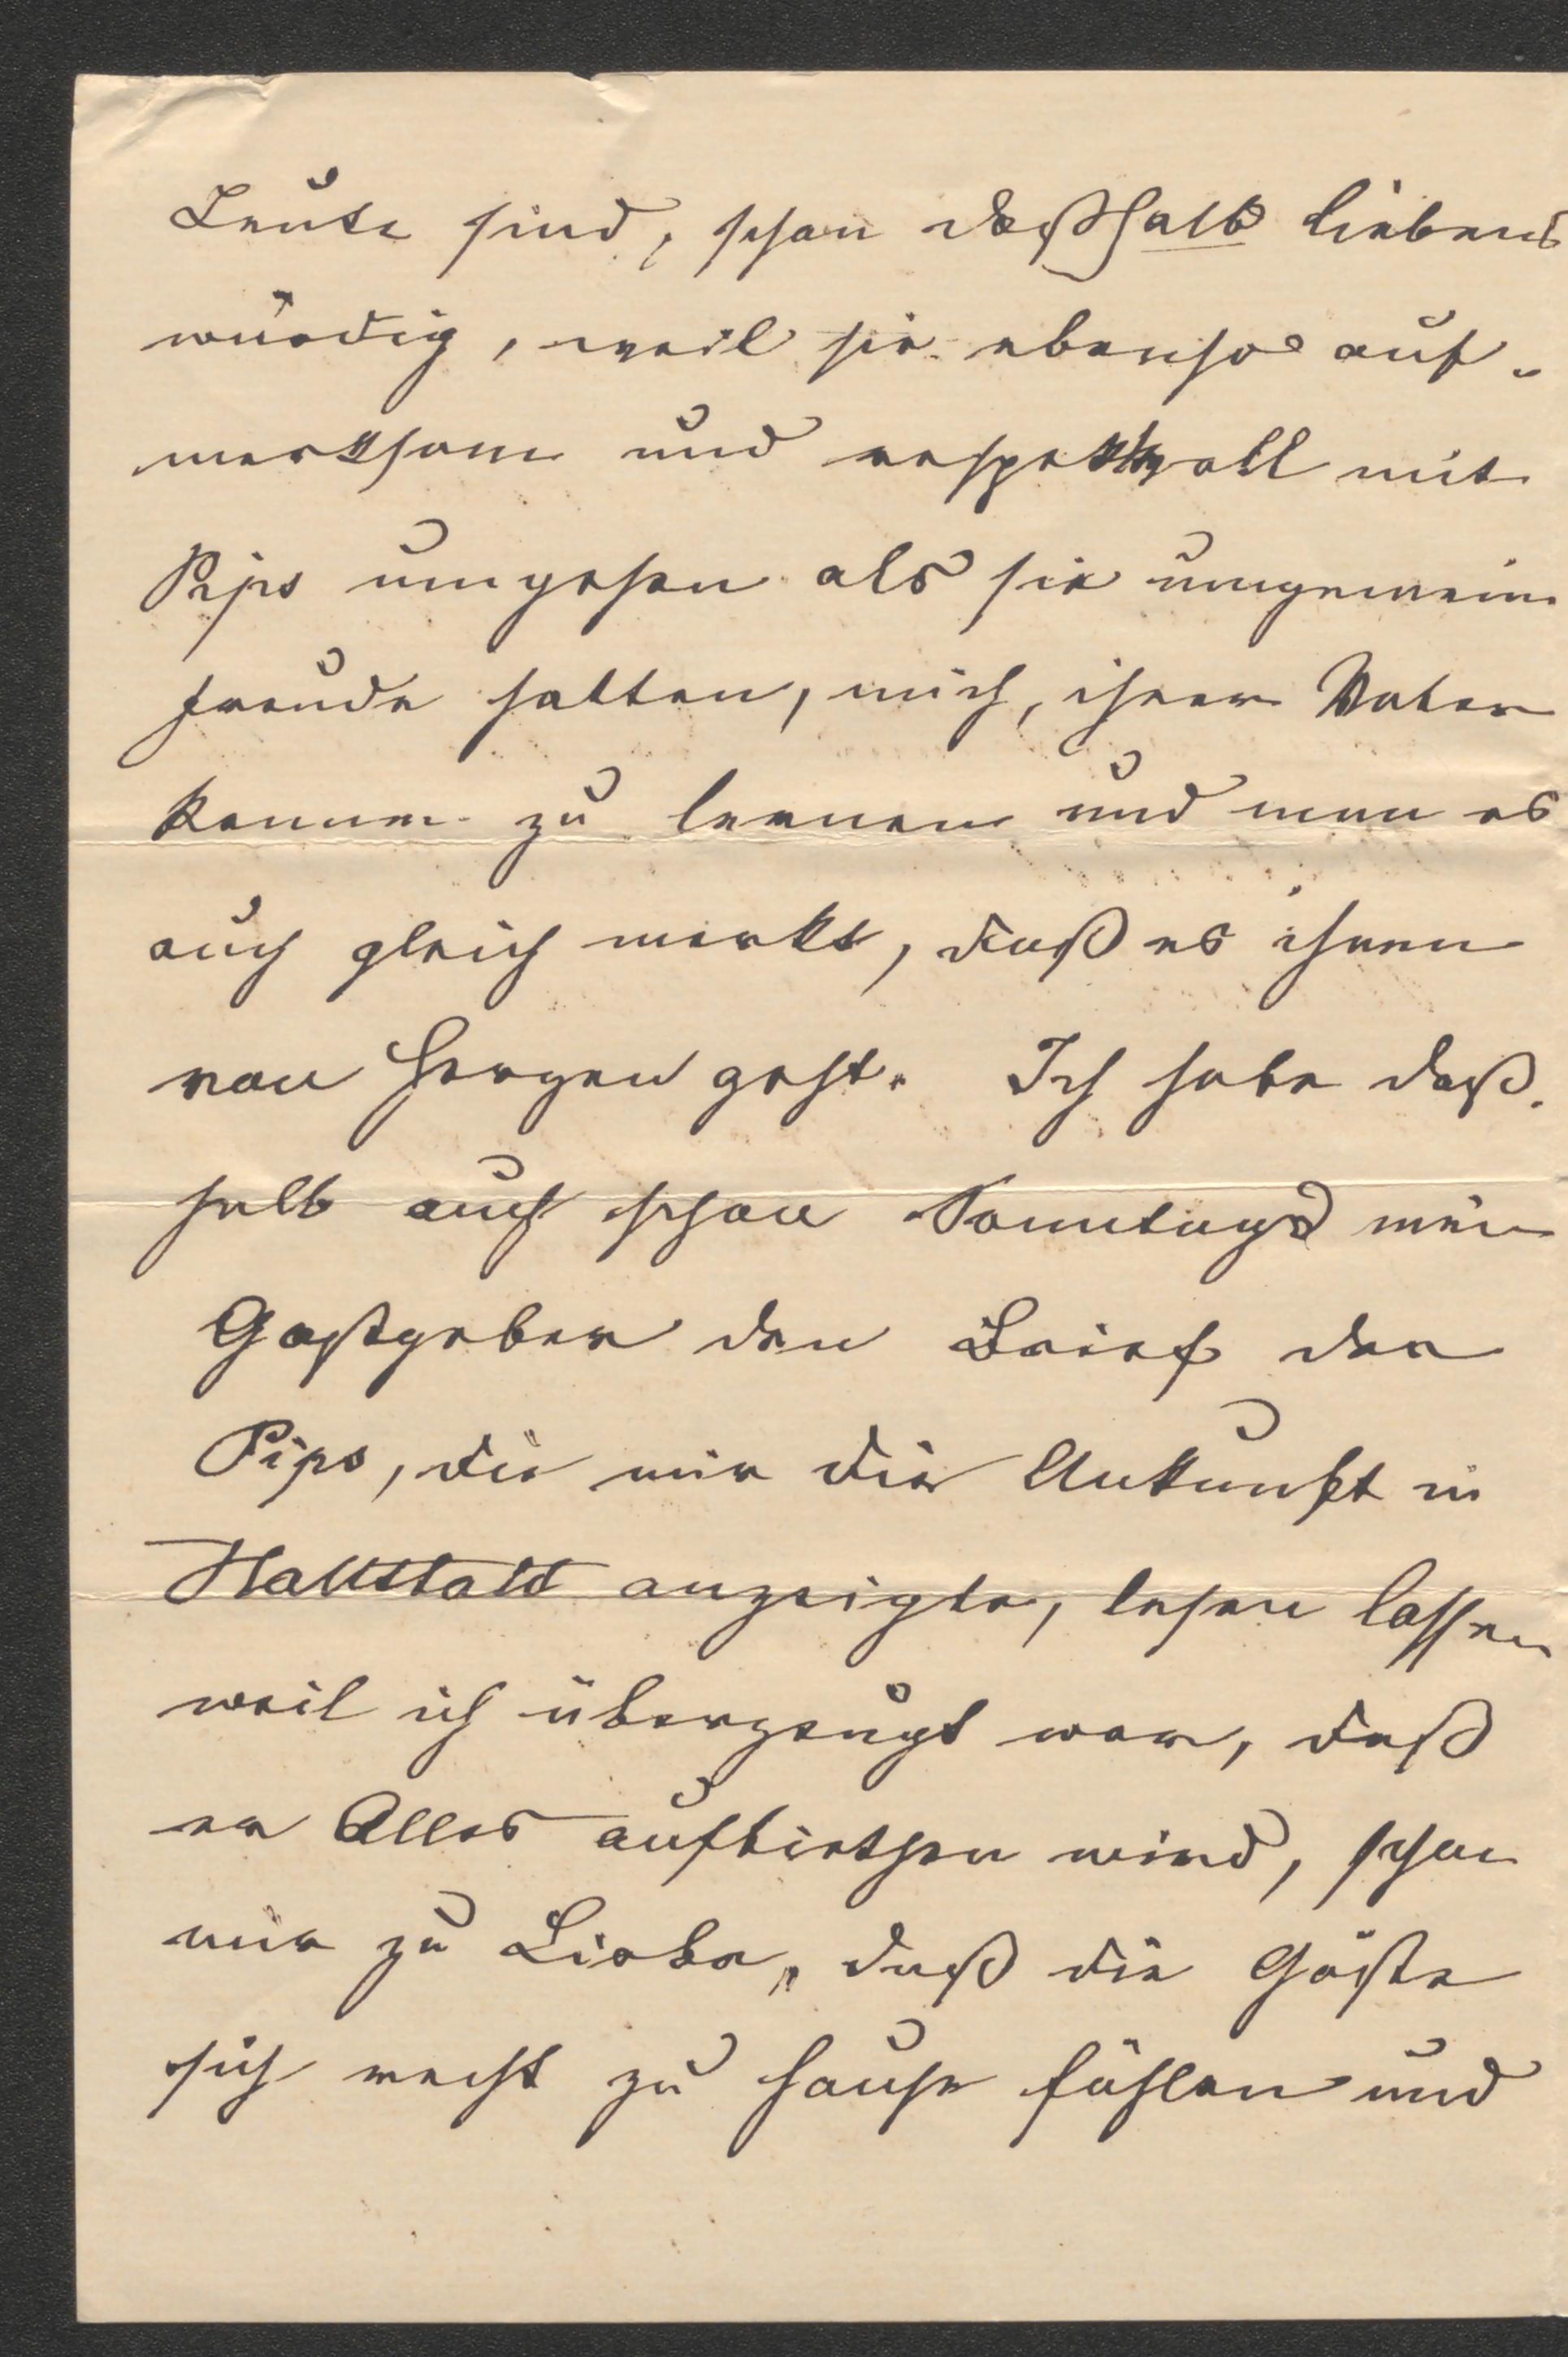 Leute sind, schon deßhalb liebens
würdig, weil sie ebenso auf-
merksam und respektvoll mit
Pips umgehen als sie ungemein
Freude hatten, mich, ihren Vater
kennen zu lernen und man es
auch gleich merkt, daß es ihnen
von Herzen geht. Ich habe deß-
halb auch schon Sonntags mein
Gastgeber den Brief der
Pips, die mir die Ankunft in
Hallstatt anzeigte, lesen lassen
weil ich überzeugt war, daß
er Alles aufbiethen wird, schon
mir zu Liebe, daß die Gäste
sich recht zu Hause fühlen und